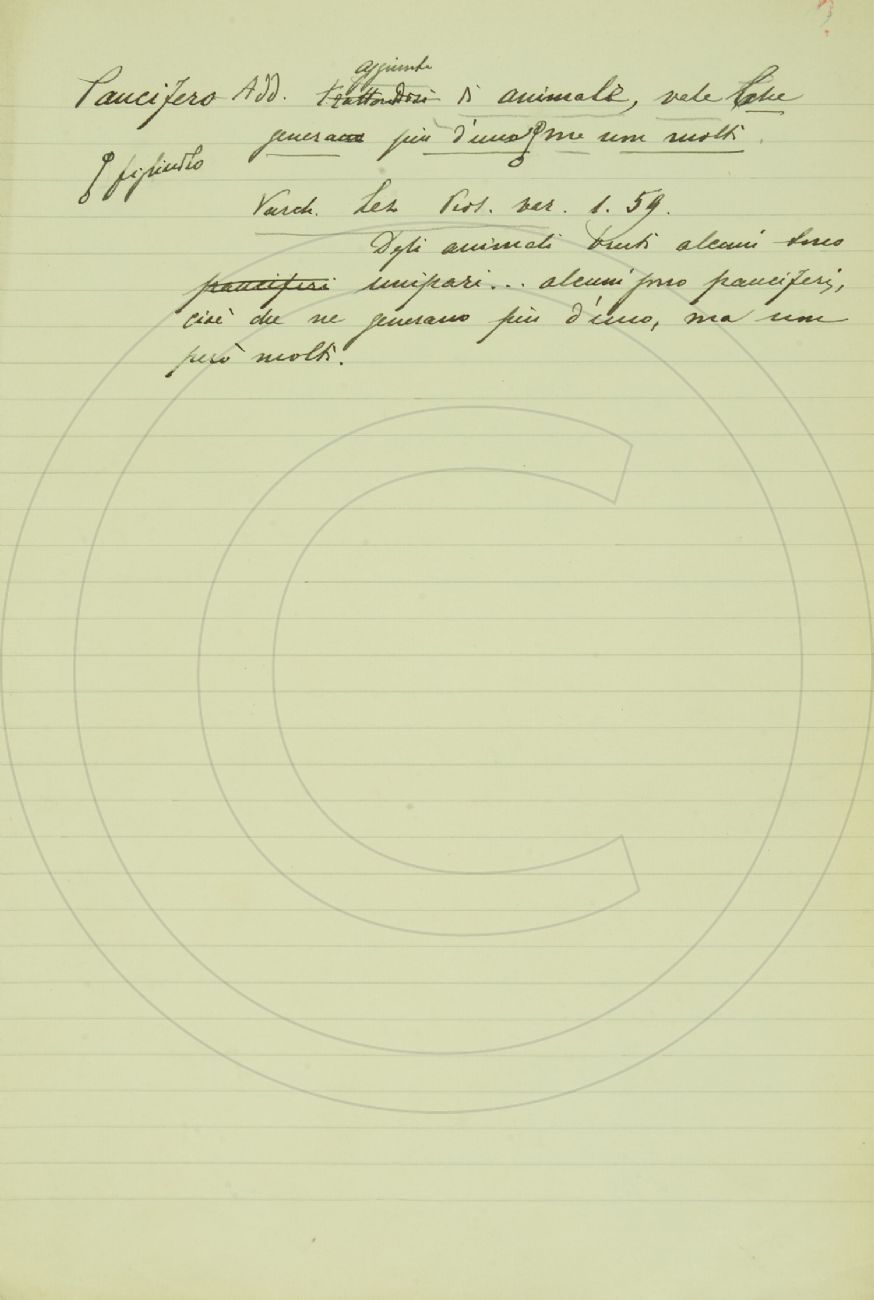 Paucifero Add. trattandosi aggiunto di animale, vale Che
genera più d'uno, ma non molti.
figliuolo
Varch. Lez. Pros. var. 1. 59.
Degli animali bruti alcuni sono
pauciferi unipari... alcuni sono pauciferi,
cioè che ne generano più d'uno, ma non
però molti.